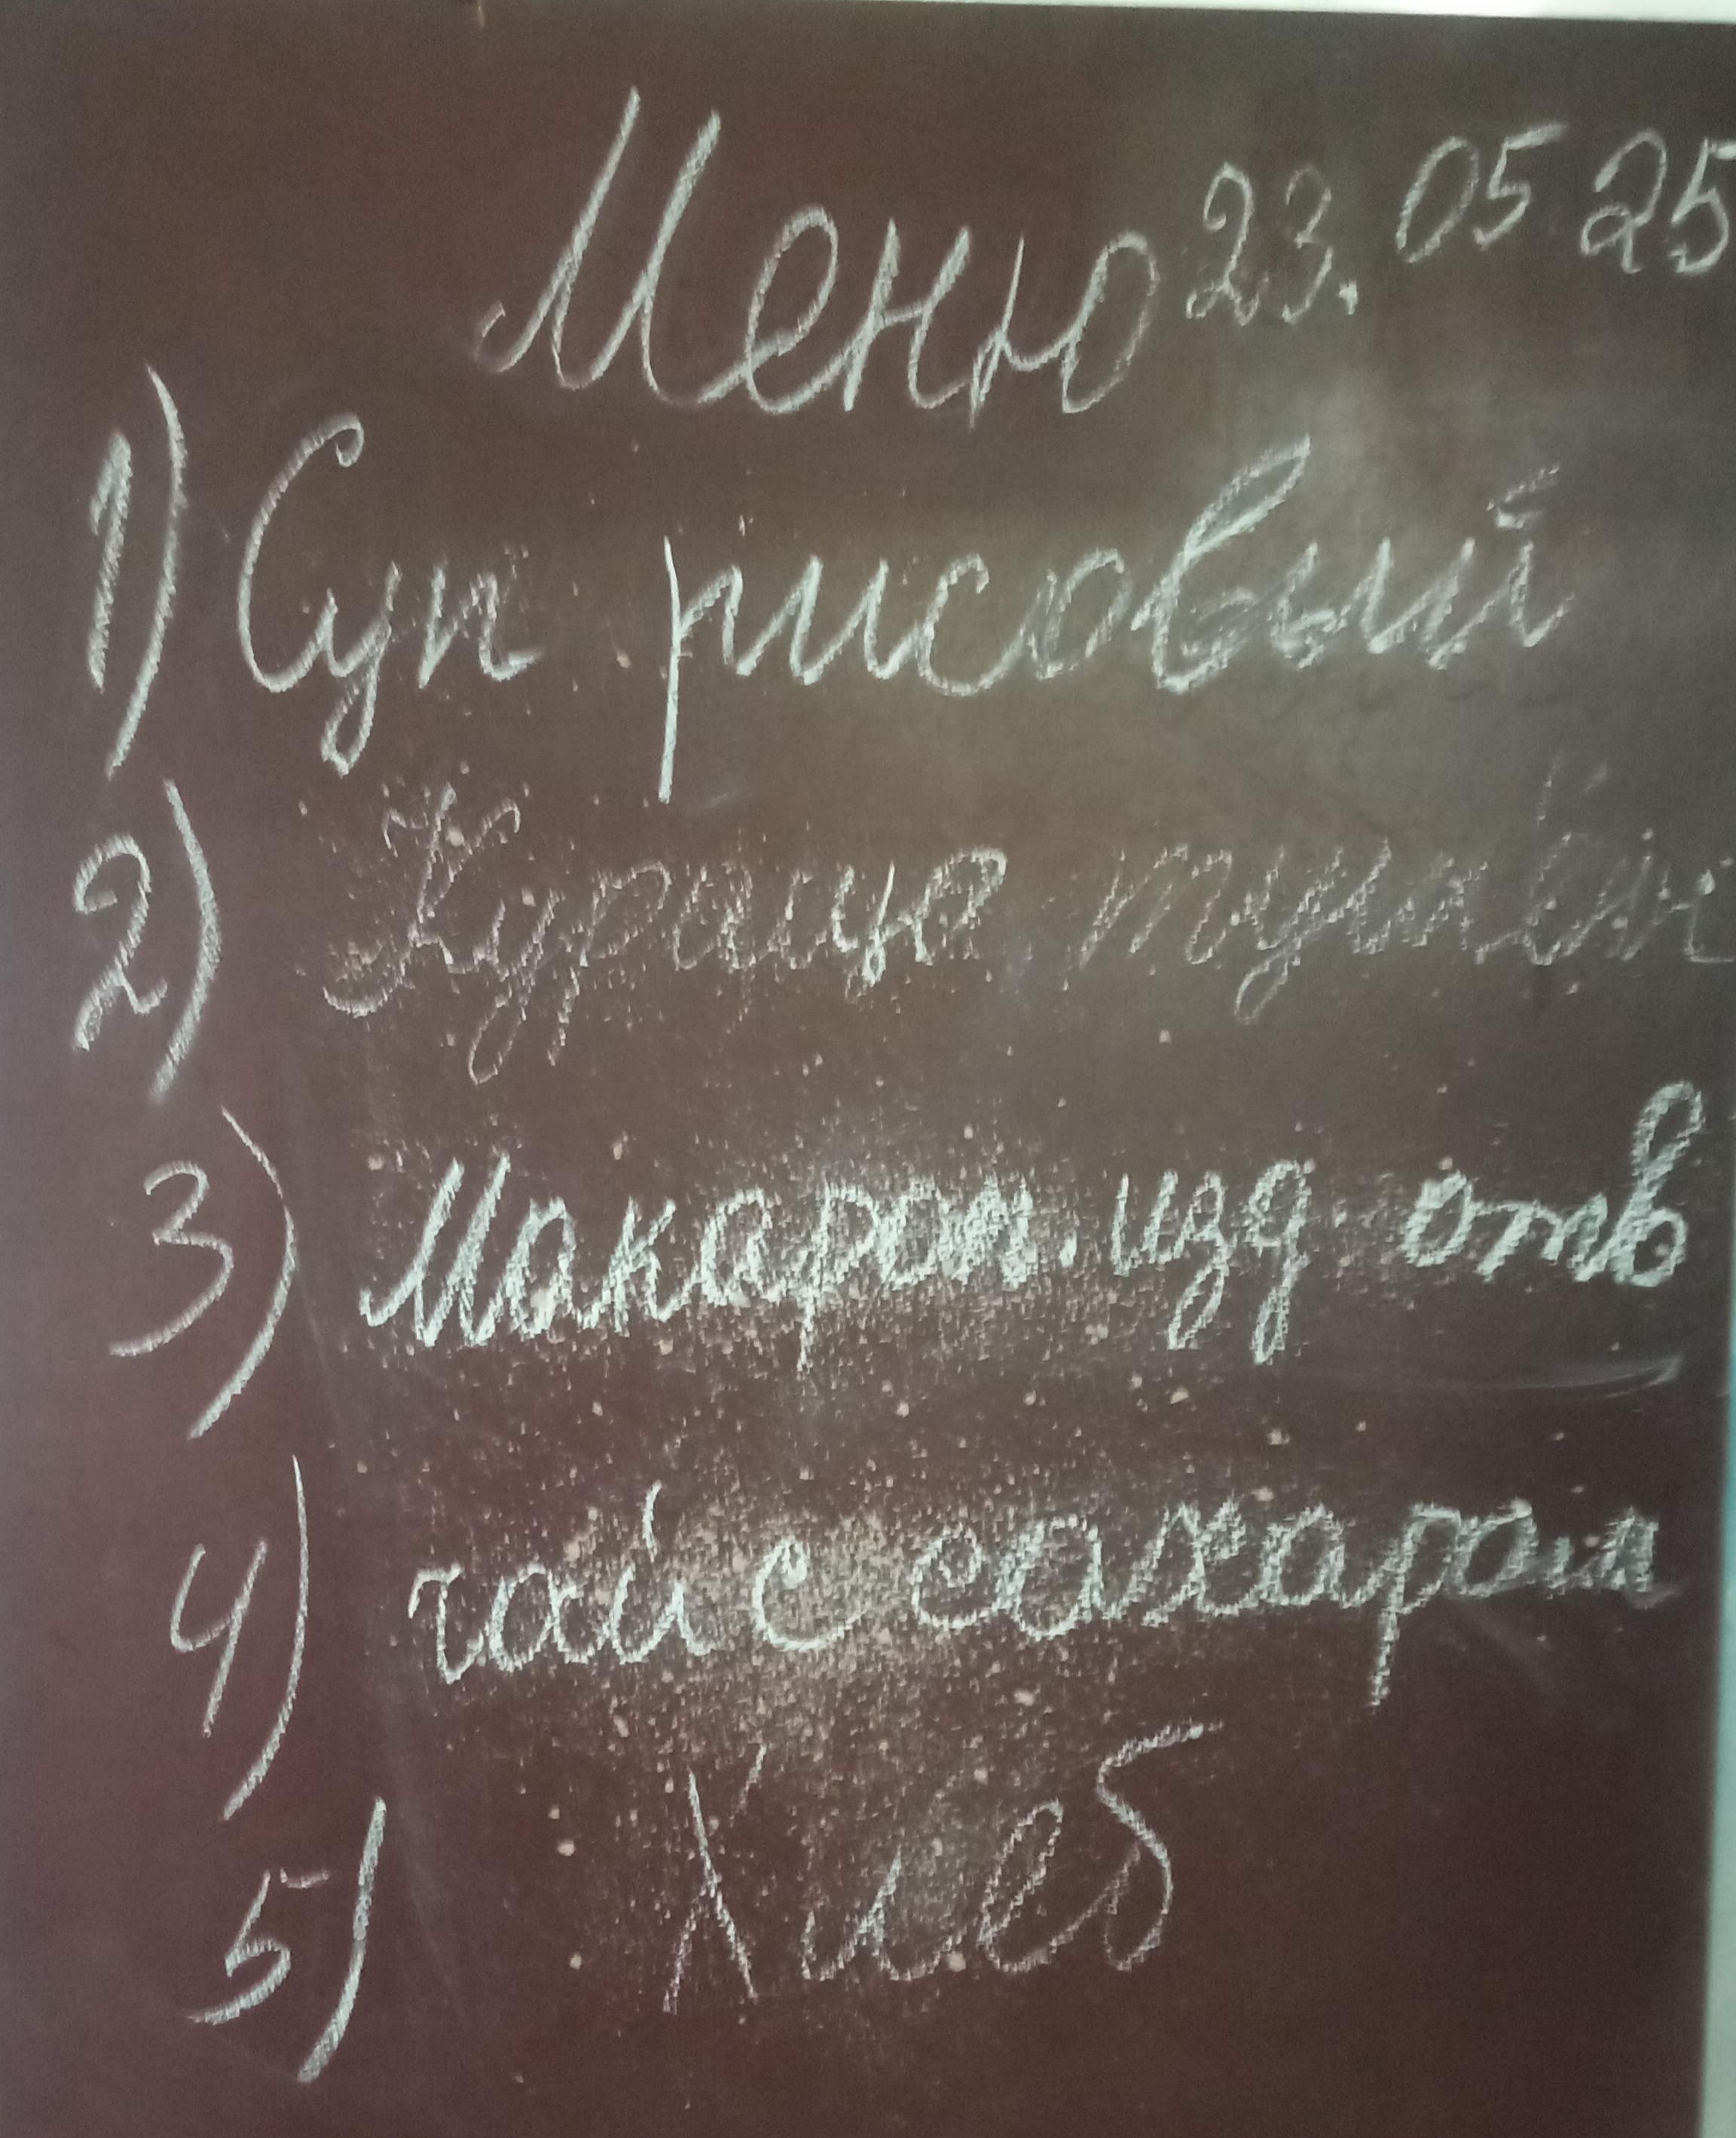 Меню 23. 05 25
1) Суп рисовый
2) Курица тушён
3) Макарон. изд. отв
4) чай с сахаром
5) Хлеб